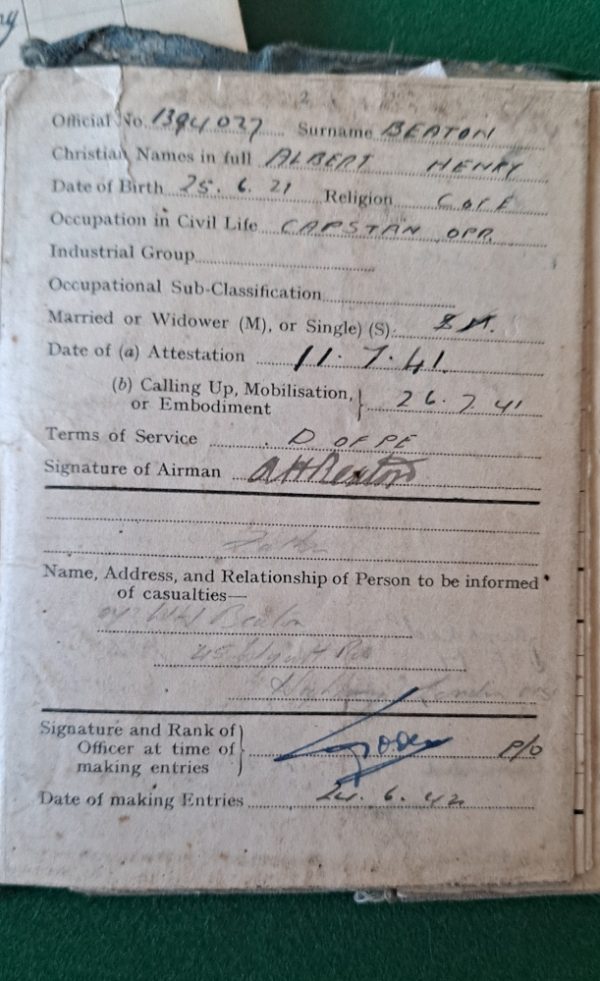 2
Official No. 1394027 Surname BEATON
Christian Names in full ALBERT HENRY
Date of Birth 25.6.21 Religion C OF E
Occupation in Civil Life CAPSTAN OPR.
Industrial Group
Occupational Sub-Classification
Married or Widower (M), or Single) (S):
Date of (a) Attestation 11.7.41.
(b) Calling Up, Mobilisation, or Embodiment } 26.7.41
Terms of Service D OF PE
Signature of Airman AHBeaton
Father
Name, Address, and Relationship of Person to be informed
of casualties—
Beaton
45
London
Signature and Rank of
Officer at time of
making entries } P/O
Date of making Entries 24.6.42